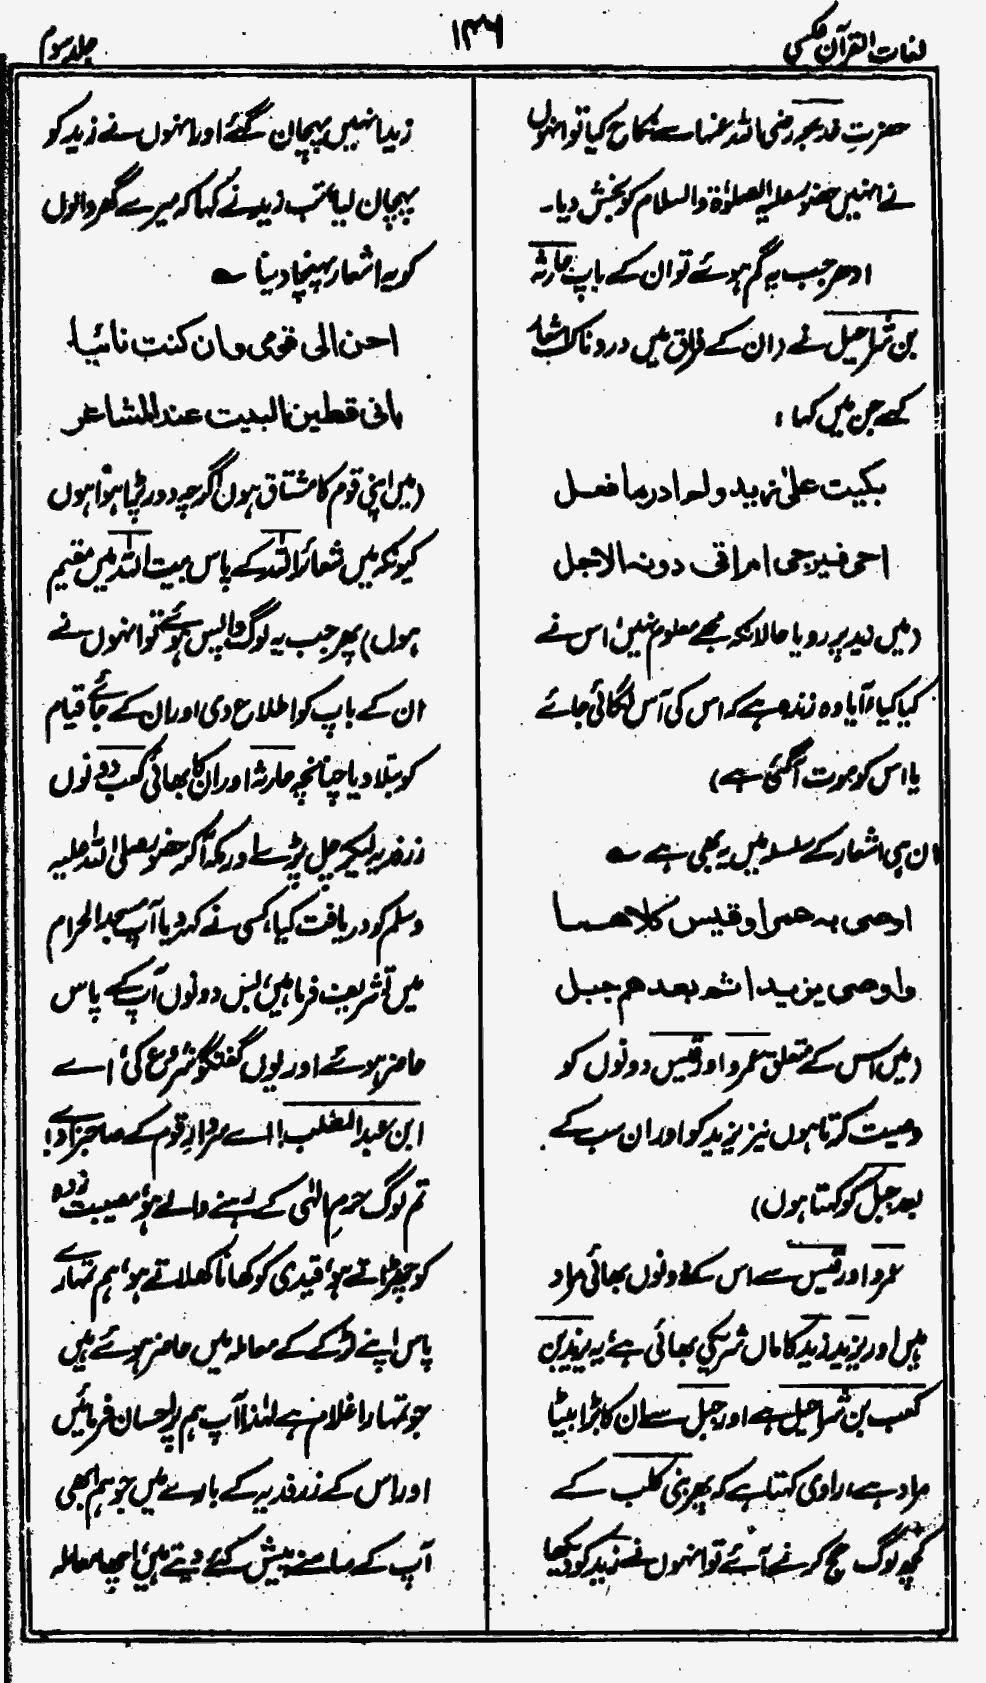 لغات القرآن عکسی
۱۴۶
جلد سوم
حضرتِ خدیجہ رضی اللہ عنہا سے نکاح کیا تو انہوں
نے انہیں حضور علیہ الصلوٰۃ والسلام کو بخش دیا۔
ادھر جب یہ گم ہوئے تو ان کے باپ حارثہ
بن شراحیل نے ان کے فراق میں دردناک اشعار
کہے جن میں کہا :
بکیت علیٰ زید ولم ادر ما فعل
احی فیرجی ام اتی دونہ الاجل
(میں زید پر رویا حالانکہ مجھے معلوم نہیں اس نے
کیا کیا، آیا وہ زندہ ہے کہ اس کی آس لگائی جائے
یا اس کو موت آگئی ہے)
ان ہی اشعار کے سلسلہ میں یہ بھی ہے ؎
اوصی بہ عمرا وقیسا کلاھما
واوصی یزیدا ثم بعدھم جبل
(میں اس کے متعلق عمرو اور قیس دونوں کو
وصیت کرتا ہوں نیز یزید کو اور ان سب کے
بعد جبل کو کہتا ہوں)
عمرو اور قیس سے اس کے دونوں بھائی مراد
ہیں اور یزید زید کا ماں شریکی بھائی ہے یہ یزید بن
کعب بن شراحیل ہے اور جبل سے ان کا بڑا بیٹا
مراد ہے، راوی کہتا ہے کہ پھر بنی کلب کے
کچھ لوگ حج کرنے آئے تو انہوں نے زید کو دیکھا
زید انہیں پہچان گئے اور انہوں نے زید کو
پہچان لیا تب زید نے کہا کہ میرے گھر والوں
کو یہ اشعار پہنچا دینا ؎
احن الی قومی وان کنت نائیا
بانی قطین البیت عند المشاعر
(میں اپنی قوم کا مشتاق ہوں اگرچہ دور پڑا ہوا ہوں
کیونکہ میں شعائر اللہ کے پاس بیت اللہ میں مقیم
ہوں) پھر جب یہ لوگ واپس ہوئے تو انہوں نے
ان کے باپ کو اطلاع دی اور ان کے جائے قیام
کو بتلا دیا چنانچہ حارثہ اور ان کا بھائی کعب دونوں
زرفدیہ لیکر چل پڑے اور مکہ آکر حضور صلی اللہ علیہ
وسلم کو دریافت کیا، کسی نے کہہ دیا آپ مسجد الحرام
میں تشریف فرما ہیں، بس دونوں آپ کے پاس
حاضر ہوئے اور یوں گفتگو شروع کی، اے
ابن عبد المطلب! اے سردارِ قوم کے صاحبزادے!
تم لوگ حرمِ الٰہی کے رہنے والے ہو، مصیبت زدہ
کو چھڑاتے ہو، قیدی کو کھانا کھلاتے ہو، ہم تمہارے
پاس اپنے لڑکے کے معاملہ میں حاضر ہوئے ہیں
جو تمہارا غلام ہے لہٰذا آپ ہم پر احسان فرمائیں
اور اس کے زرفدیہ کے بارے میں جو ہم ابھی
آپ کے سامنے پیش کئے دیتے ہیں، اچھا معاملہ